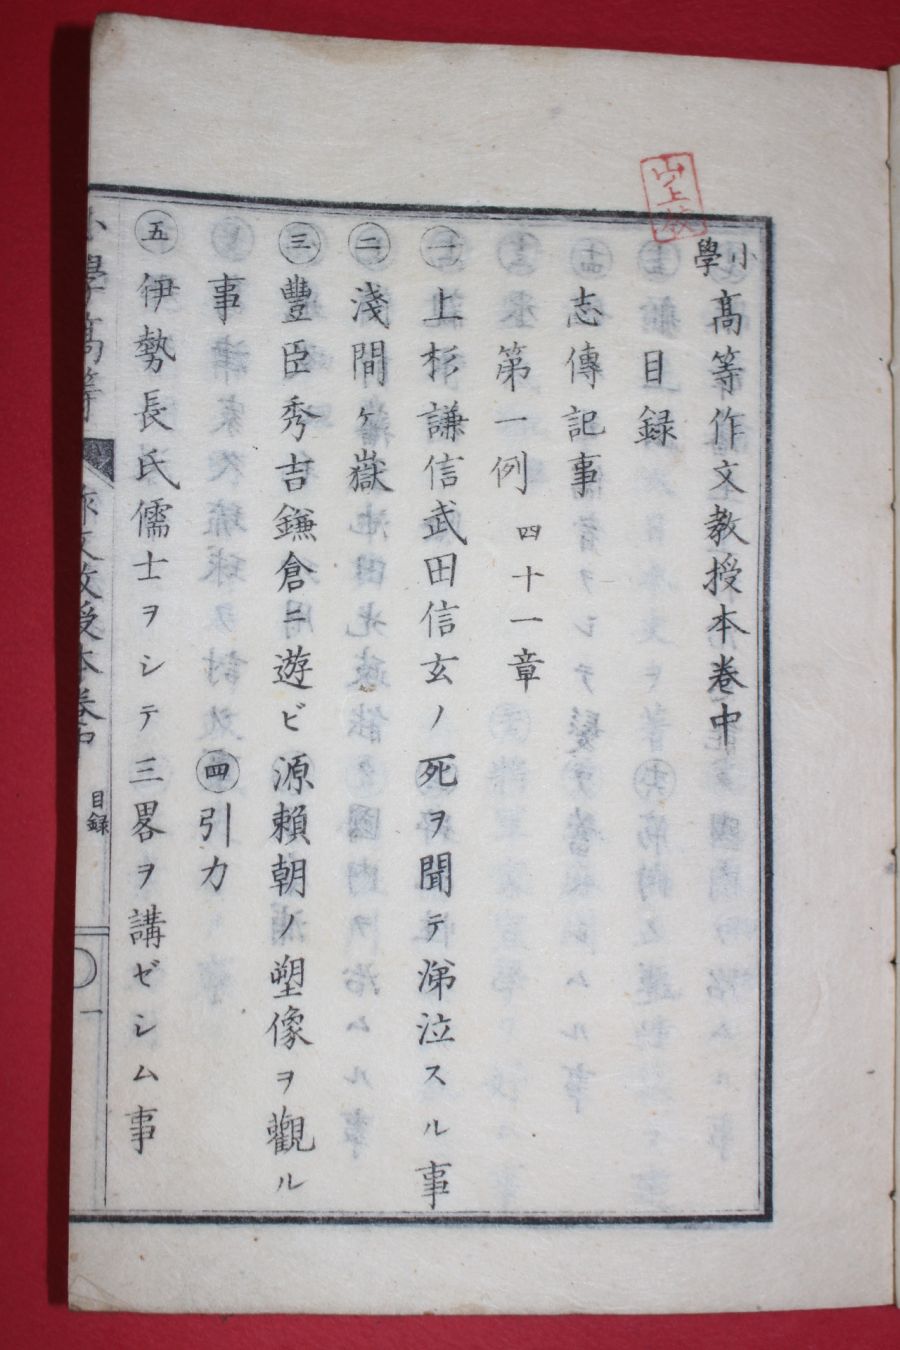 小學高等作文教授本卷中
目録
志傳記事
第一例 四十一章
㊀上杉謙信武田信玄ノ死ヲ聞テ涕泣スル事
㊁淺間ヶ嶽
㊂豐臣秀吉鎌倉ニ遊ビ源賴朝ノ塑像ヲ觀ル
事 ㊃引力
㊄伊勢長氏儒士ヲシテ三畧ヲ講ゼシム事
小學高等 作文教授本卷中 目録 一